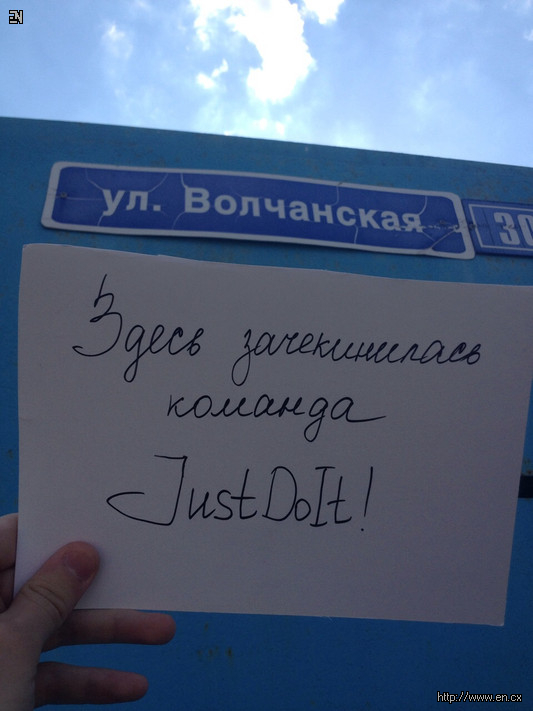 EN
ул. Волчанская
30
Здесь зачекинилась
команда
JustDoIt!
http://www.en.cx